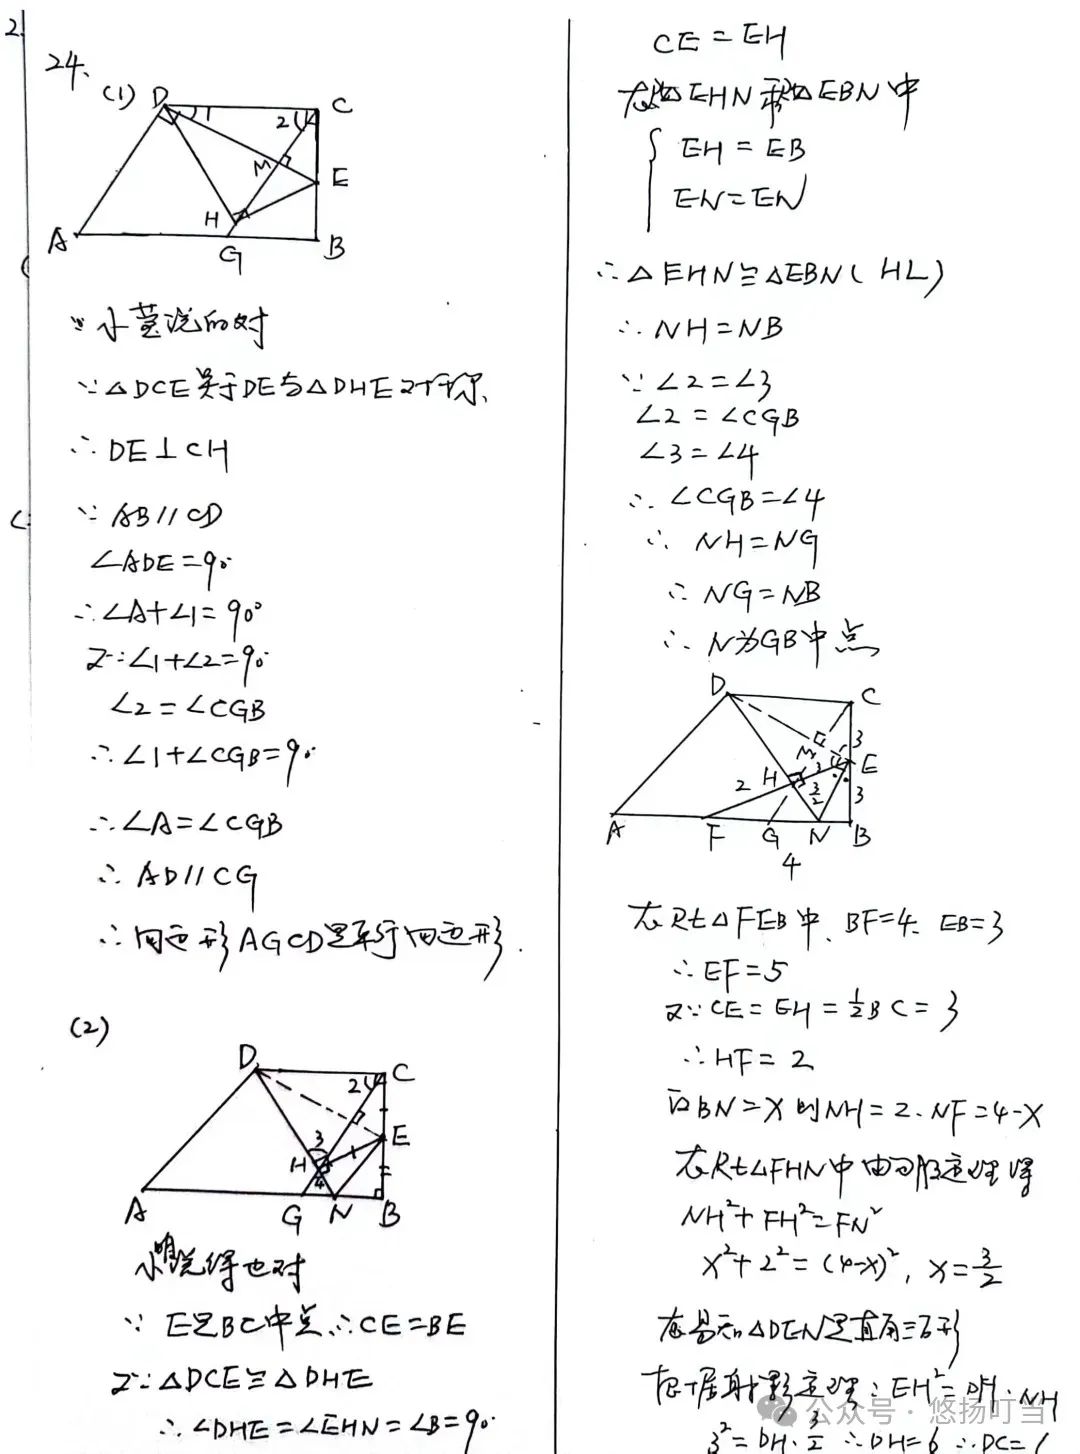 2.
24.
(1)
D
1
2
C
M
E
H
A
G
B
∵小莹说的对
∵△DCE关于DE与△DHE对称
∴DE⊥CH
∵AB∥CD
∠ADE=90°
∴∠A+∠1=90°
又∵∠1+∠2=90°
∠2=∠CGB
∴∠1+∠CGB=90°
∴∠A=∠CGB
∴AD∥CG
∴四边形AGCD是平行四边形.
(2)
D
2
C
3
E
H
1
4
A
G
N
B
小明说得也对
∵E是BC中点∴CE=BE
又∵△DCE≌△DHE
∴∠DHE=∠EHN=∠B=90°
CE=EH
在Rt△EHN和Rt△EBN中
EH=EB
EN=EN
∴△EHN≌△EBN(HL)
∴NH=NB
∵∠2=∠3
∠2=∠CGB
∠3=∠4
∴∠CGB=∠4
∴NH=NG
∴NG=NB
∴N为GB中点
D
C
M
3
3
E
H
2
3/2
3
A
F
G
N
B
4
在Rt△FEB中、BF=4、EB=3
∴EF=5
又∵CE=EH=1/2BC=3
∴HF=2
设BN=x则NH=2.NF=4-x
在Rt△FHN中由勾股定理得
NH²+FH²=FN²
x²+2²=(4-x)², x=3/2
易知△DEN是直角三角形
根据射影定理:EH²=DH·NH
3²=DH·3/2 ∴DH=6 ∴DC=
公众号·悠扬叮当